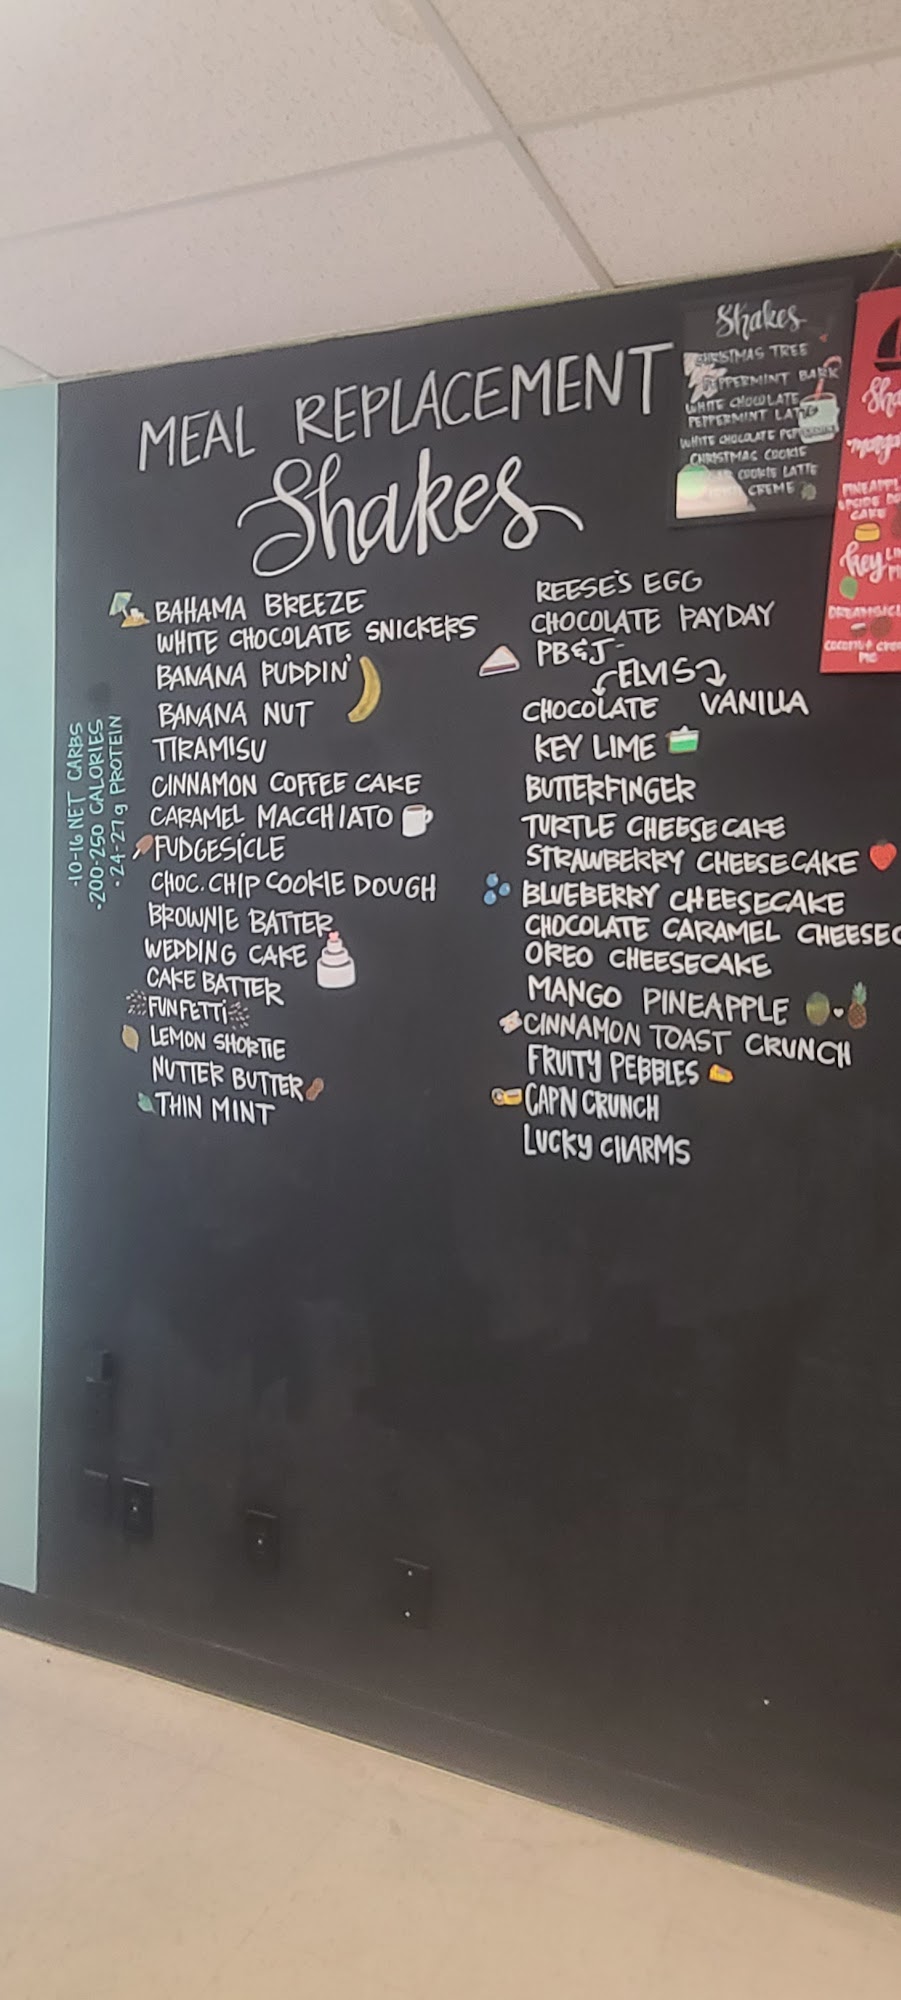 MEAL REPLACEMENT
Shakes
-10-16 NET CARBS
•200-250 CALORIES
•24-27g PROTEIN
BAHAMA BREEZE
WHITE CHOCOLATE SNICKERS
BANANA PUDDIN'
BANANA NUT
TIRAMISU
CINNAMON COFFEE CAKE
CARAMEL MACCHIATO
FUDGESICLE
CHOC. CHIP COOKIE DOUGH
BROWNIE BATTER
WEDDING CAKE
CAKE BATTER
FUNFETTi
LEMON SHORTIE
NUTTER BUTTER
THIN MINT
REESE'S EGG
CHOCOLATE PAYDAY
PB&J-
ELVIS
CHOCOLATE VANILLA
KEY LIME
BUTTERFINGER
TURTLE CHEESECAKE
STRAWBERRY CHEESECAKE
BLUEBERRY CHEESECAKE
CHOCOLATE CARAMEL CHEESEC
OREO CHEESECAKE
MANGO PINEAPPLE
CINNAMON TOAST CRUNCH
FRUITY PEBBLES
CAPN CRUNCH
LUCKY CHARMS
Shakes
CHRISTMAS TREE
PEPPERMINT BARK
WHITE CHOCOLATE
PEPPERMINT LATTE
WHITE CHOCOLATE
CHRISTMAS COOKIE
COOKIE LATTE
CREME
Sha
PINEAPPL
UPSIDE DO
CAKE
key LIM
DREAMSICL
COCONUT CREA
PIE